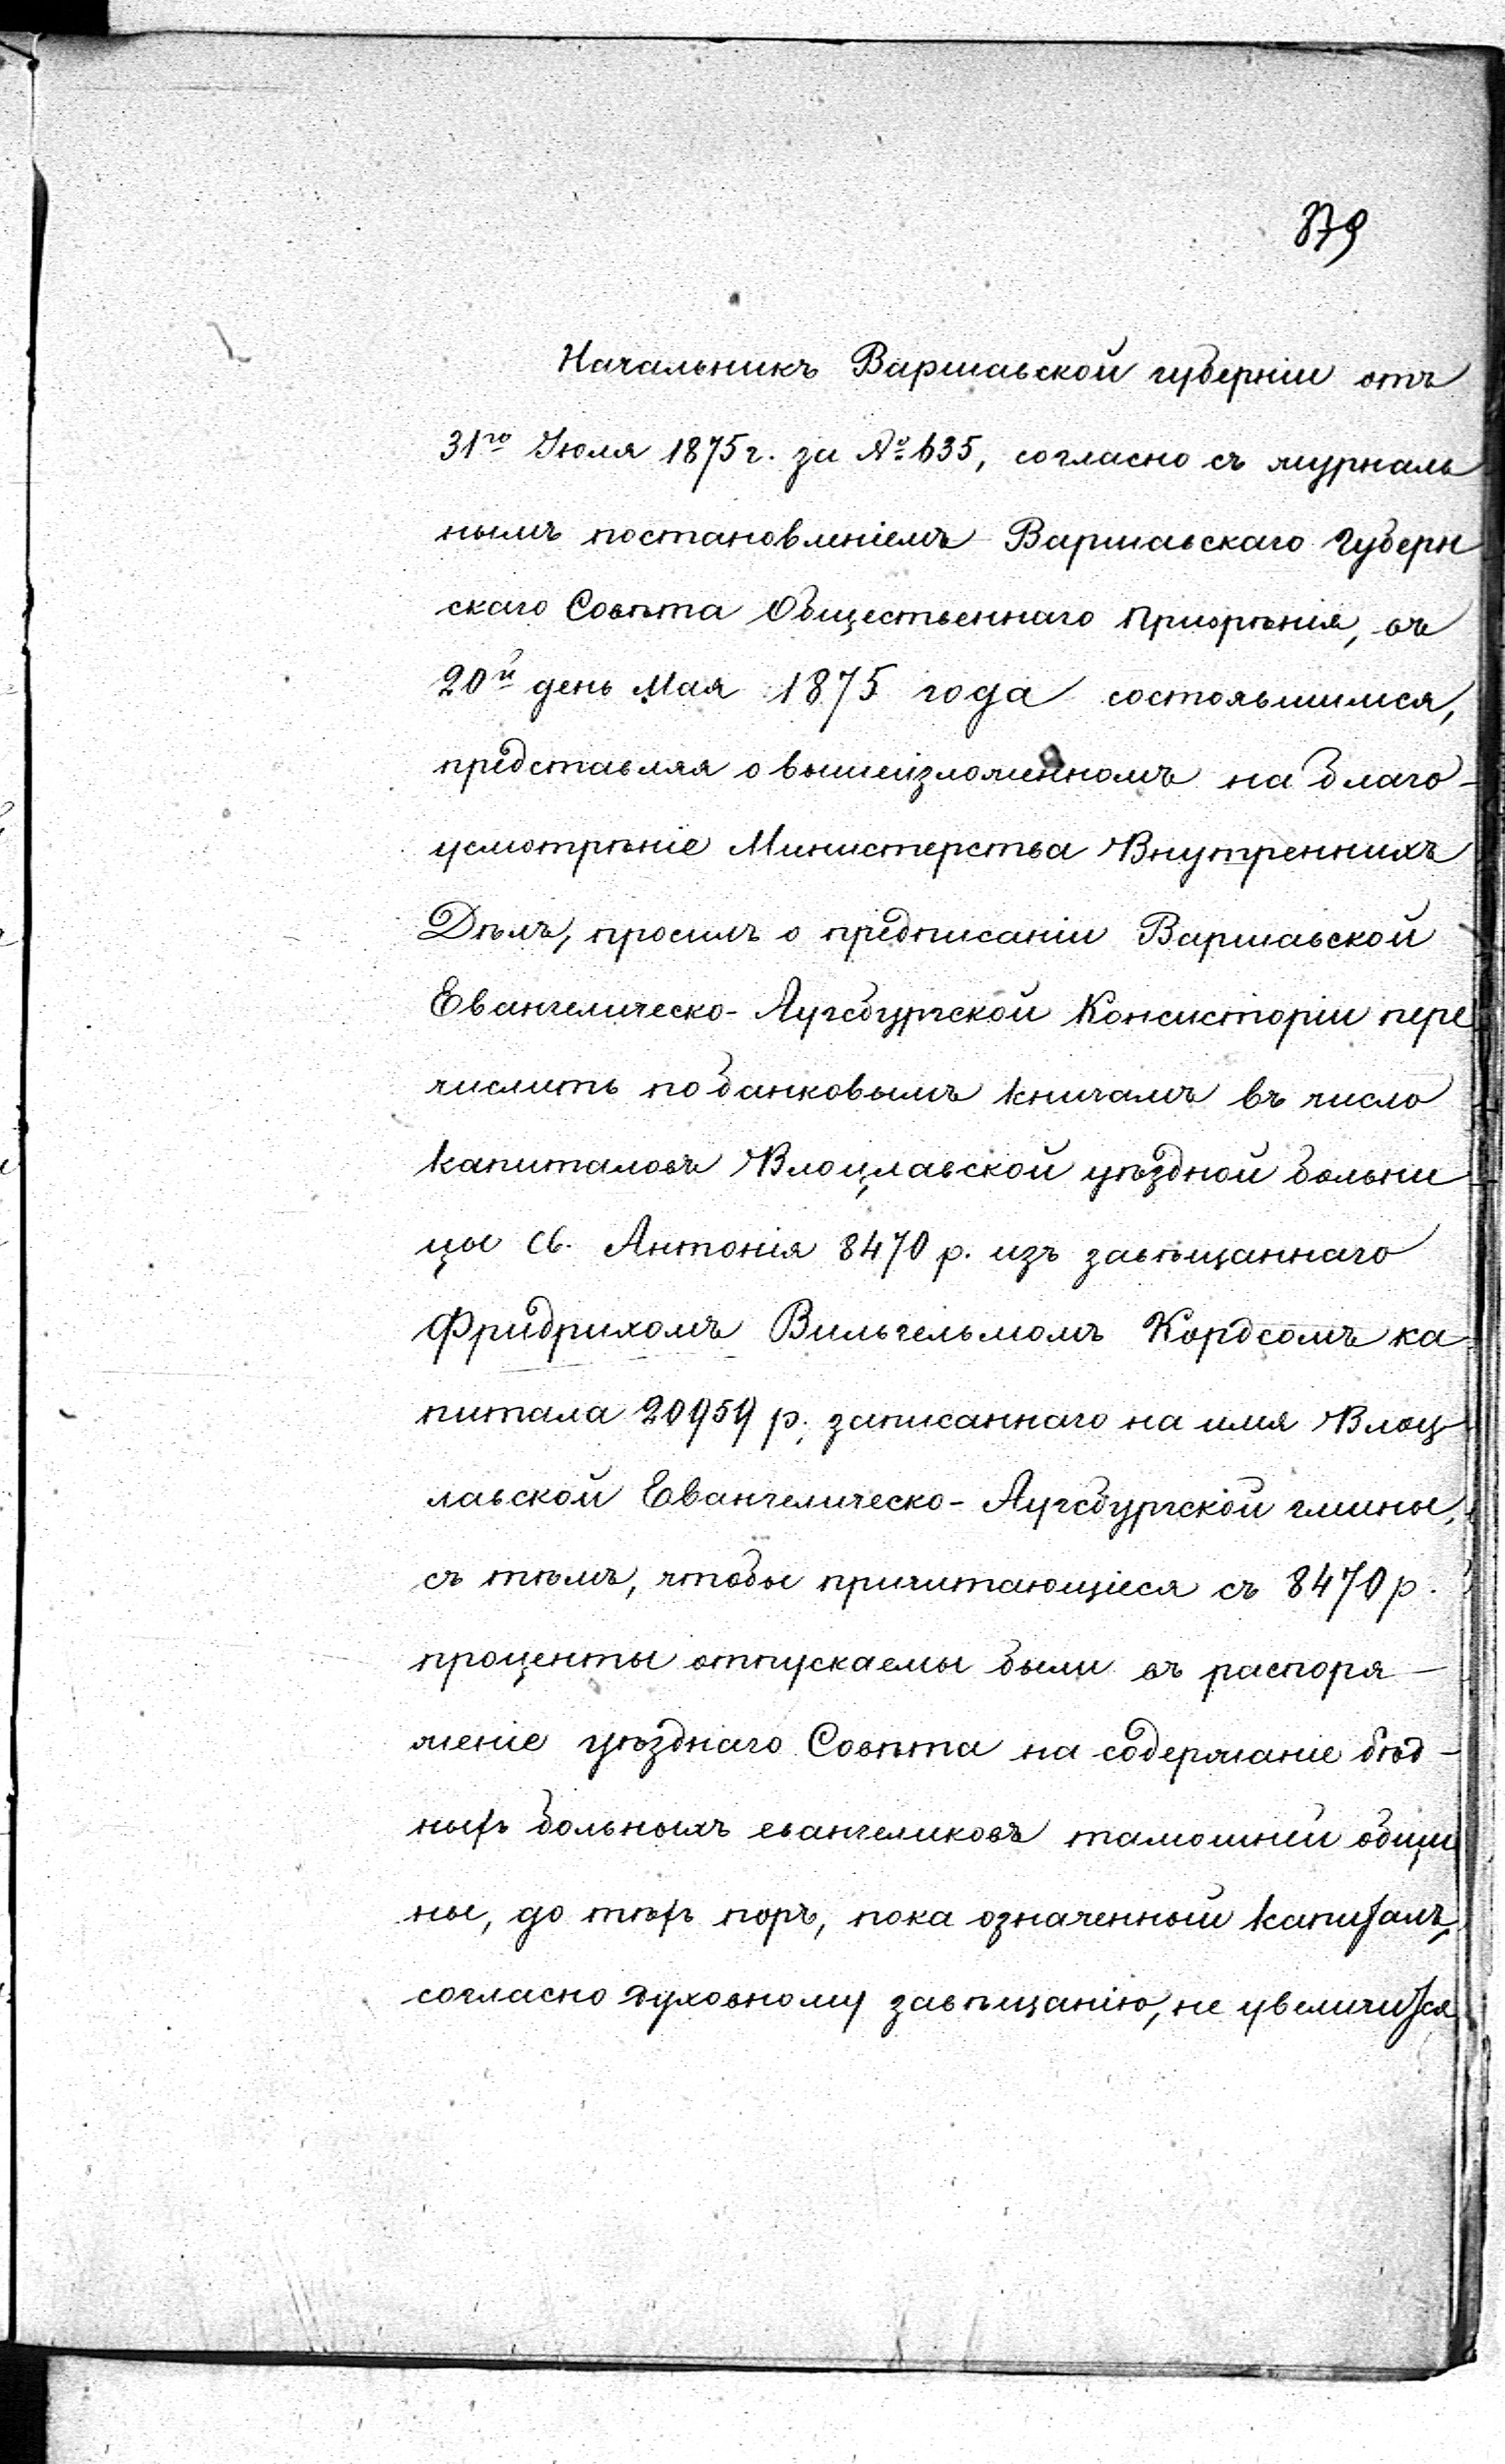 879
Начальникъ Варшавской губерніи отъ
31го Іюля 1875 г. за № 635, согласно съ журналь
нымъ постановленіемъ Варшавскаго Губерн
скаго Совѣта Общественнаго Призрѣнія, въ
20й день Мая 1875 года состоявшимся,
представляя о вышеизложенномъ на благо-
усмотрѣніе Министерства Внутреннихъ
Дѣлъ, просилъ о предписаніи Варшавской
Евангелическо-Аугсбургской Консисторіи пере
числить по банковымъ книгамъ въ число
капиталовъ Влоцлавской уѣздной больни
цы Св. Антонія 8470 р. изъ завѣщаннаго
Фридрихомъ Вильгельмомъ Кордсомъ ка-
питала 20959 р., записаннаго на имя Влоц
лавской Евангелическо-Аугсбургской гмины,
съ тѣмъ, чтобы причитающіеся съ 8470 р.
проценты отпускаемы были въ распоря-
женіе уѣзднаго Совѣта на содержаніе бѣд-
ныхъ больныхъ евангеликовъ тамошней общи
ны, до тѣхъ поръ, пока означенный капиталъ,
согласно духовному завѣщанію, не увеличится